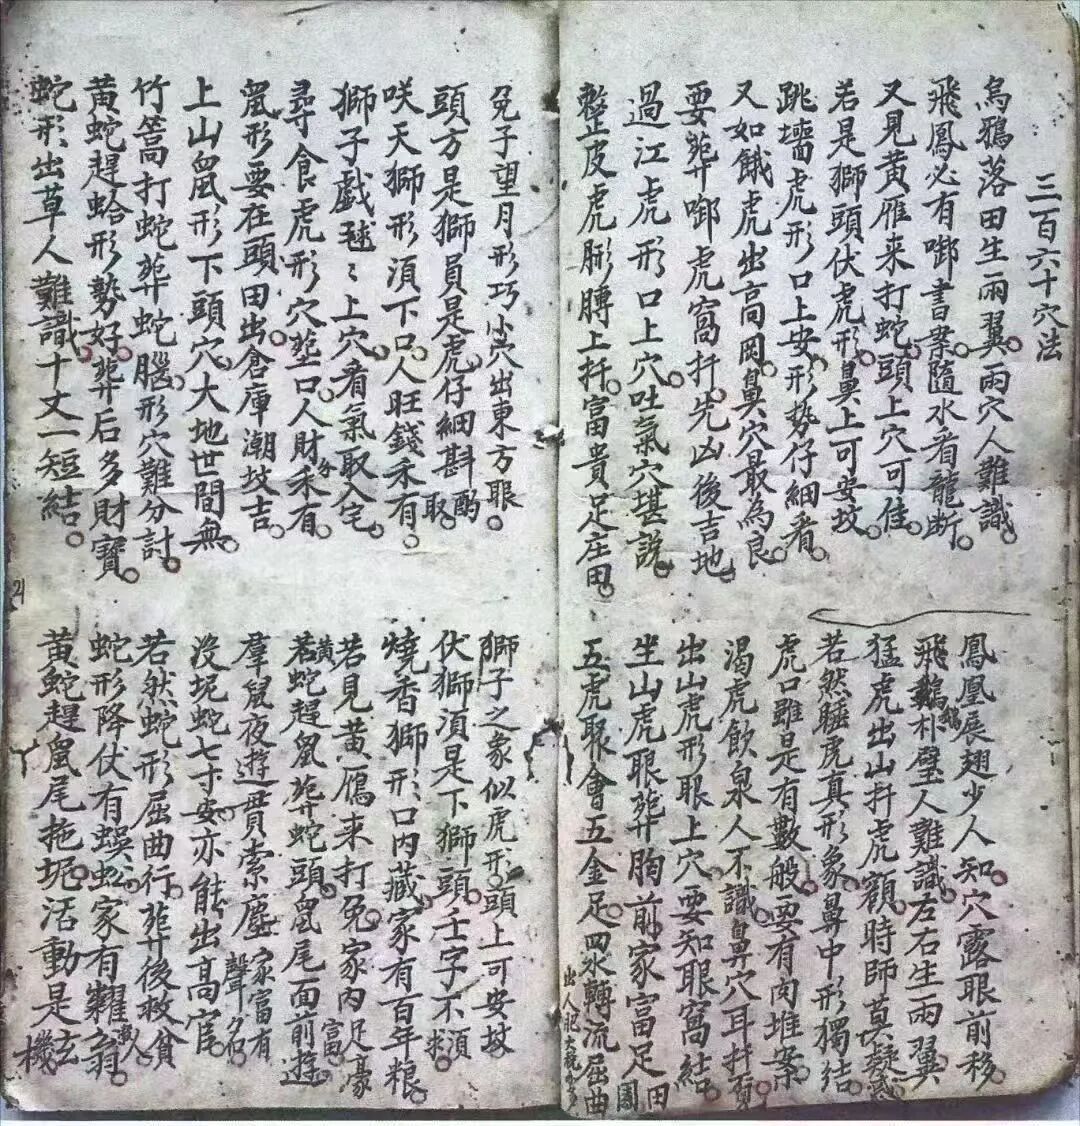 三百六十穴法
烏鴉落田生兩翼。兩穴人難識。
鳳凰展翅少人知。穴露眼前移。
飛鳳必有啣書案。隨水看龍断。
飛鵝朴壁人難識。左右生兩翼。
又見黄雁来打蛇。頭上穴可佳。
猛虎出山扦虎額。時師莫疑惑。
若是獅頭伏虎形。鼻上可安坟。
若然睡虎真形象。鼻中形獨結。
跳墻虎形口上安。形勢仔細看。
虎口雖是有數般。要有肉堆案。
又如餓虎出高岡。鼻穴最為良。
渴虎飲泉人不識。鼻穴耳扦
要葬啣虎窩扦。先凶後吉地。
出山虎形眼上穴。要知眼窩結。
過江虎形口上穴。吐氣穴堪說。
坐山虎眼葬胸前。家富足田園
整皮虎形膊上扦。富貴足庄田。
五虎聚會五金足。四水轉流屈曲
出人
兔子望月形巧小。穴出東方眼。
獅子之象似虎形。頭上可安坟
頭方是獅員是虎。仔細斟酌取
伏獅湏是下獅頭。壬字不湏求
咲天獅形湏下口。人旺錢禾有。
燒香獅形口内藏。家有百年粮
獅子戯毬毬上穴。看氣取入宅。
若見黄鴈来打兔。家内足豪富
尋食虎形穴莖口。人財禾有。
若黄蛇趕鼠葬蛇頭。鼠尾面前遊。
鼠形要在頭田出。倉庫潮坟吉。
羣鼠夜遊貫索塵。家富有聲名
上山鼠形下頭穴。大地世間無。
没坭蛇七寸安。亦能出高官。
竹篙打蛇葬蛇腦。形穴難分討。
若然蛇形屈曲行。葬後救貧人。
黄蛇趕蛤形勢好。葬后多財寶。
蛇形降伏有蜈蚣。家有糶翁。
蛇形出草人難識。十丈一短結。
黄蛇趕鼠尾拖坭。活動是玄機